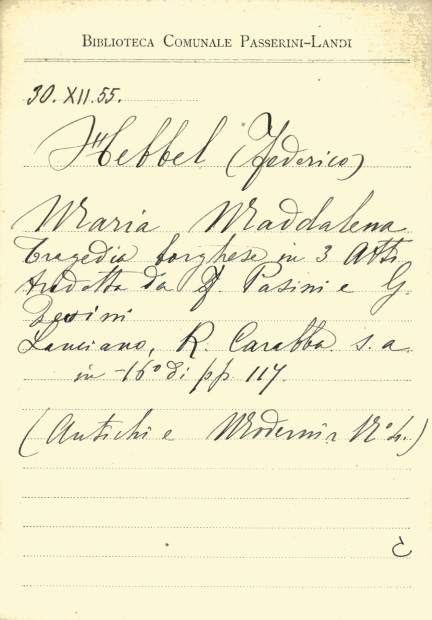 BIBLIOTECA COMUNALE PASSERINI-LANDI
30.XII.55.
Hebbel (Federico)
Maria Maddalena
Tragedia borghese in 3 Atti
tradotta da F. Pasini e G.
Lanciano, R. Carabba s. a.
in -16° di pp. 117.
(Antichi e Moderni N° 4.)